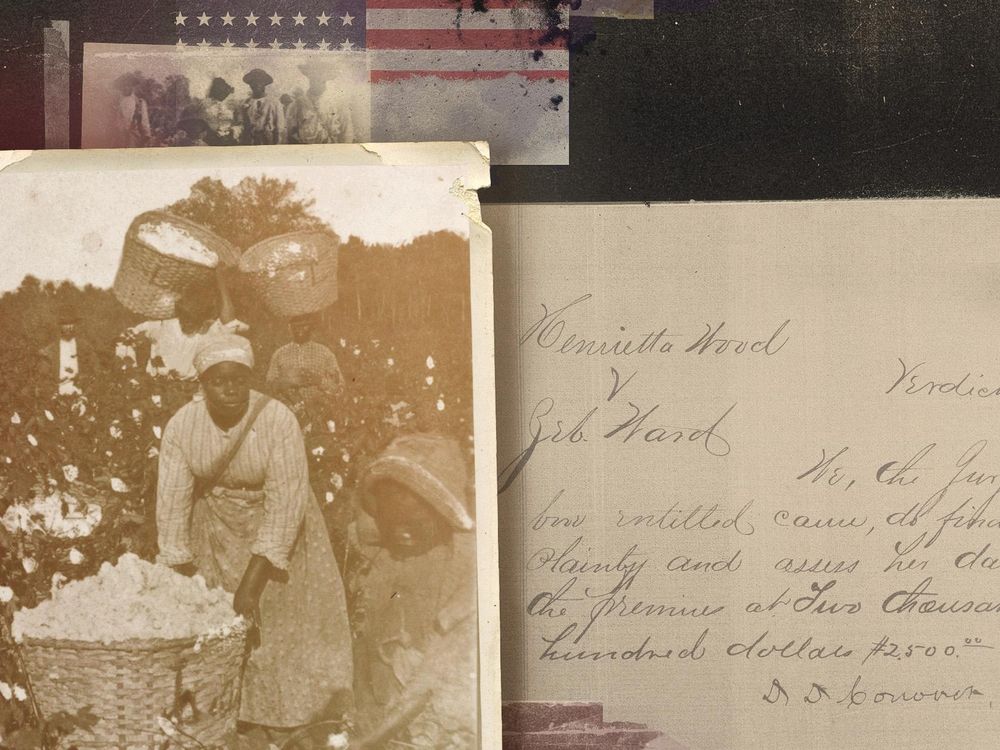 Henrietta Wood
V Verdic
Zeb. Ward
We, the Jur
bove entitled cause, do find
plainty and assess her da
the premises at Two thousan
hundred dollars $2500.00
D D Conover,